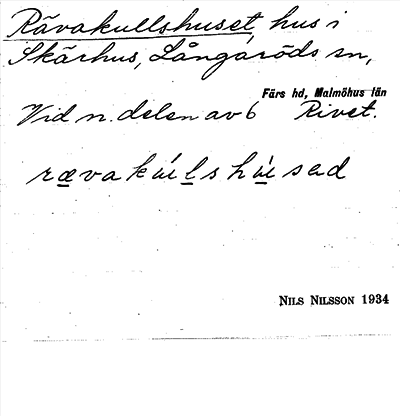 Rävakullshuset, hus i
Skärhus, Långaröds sn,
Färs hd, Malmöhus län
Vid n. delen av 6 Rivet.
rævakúlshúsəd
NILS NILSSON 1934